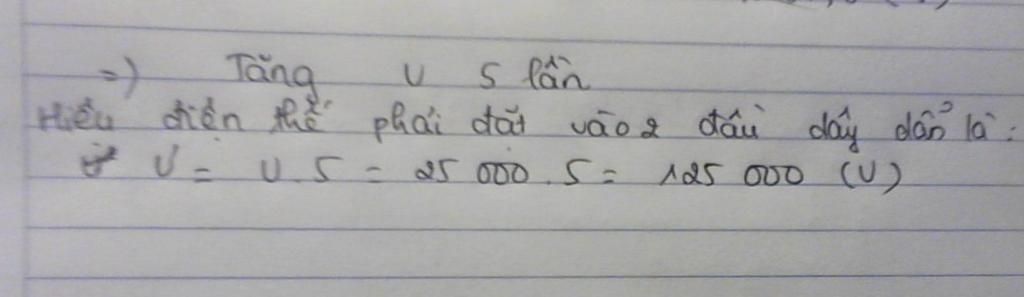 => Tăng U 5 lần
Hiệu điện thế phải đặt vào 2 đầu dây dẫn là:
U' = U . 5 = 25 000 . 5 = 125 000 (V)